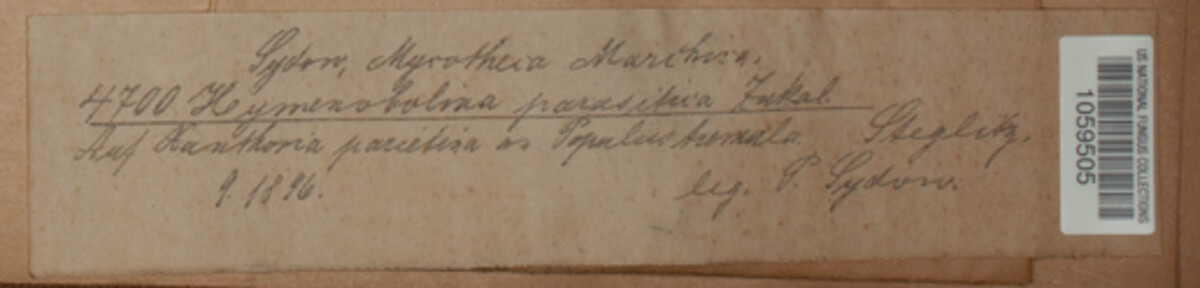 Sydow, Mycotheca Marchica.
4700. Hymenobolina parasitica Zukal.
Auf Xanthoria parietina an Populus tremula. Steglitz.
9. 1896. leg. P. Sydow.
US NATIONAL FUNGUS COLLECTIONS
1059505